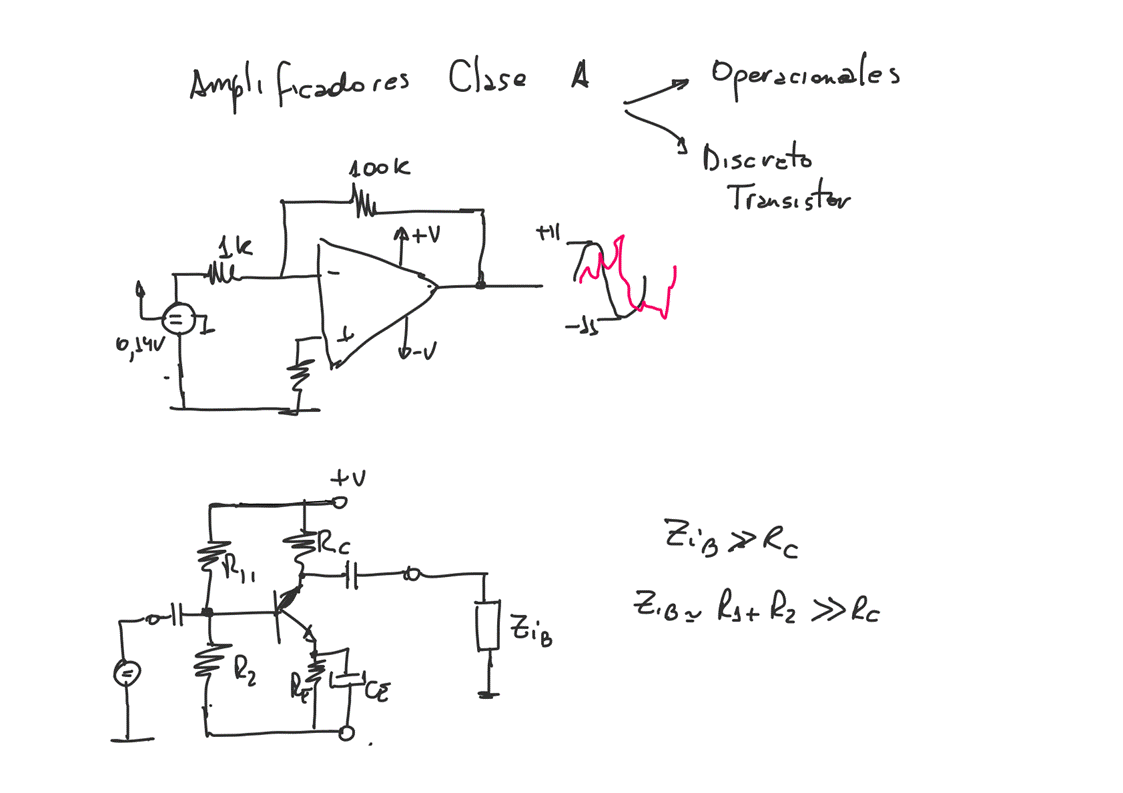 Amplificadores Clase A
Operacionales
Discreto
Transistor
100K
1K
+V
-
+
-V
0,14V
+11
-11
+V
R11
RC
R2
RE
CE
ZiB
ZiB >> RC
ZiB ≃ R1 + R2 >> RC